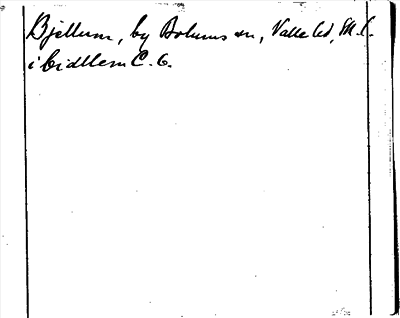 Bjellum, by Bolums sn, Valle hd, M. C.
i bidllem C. C.